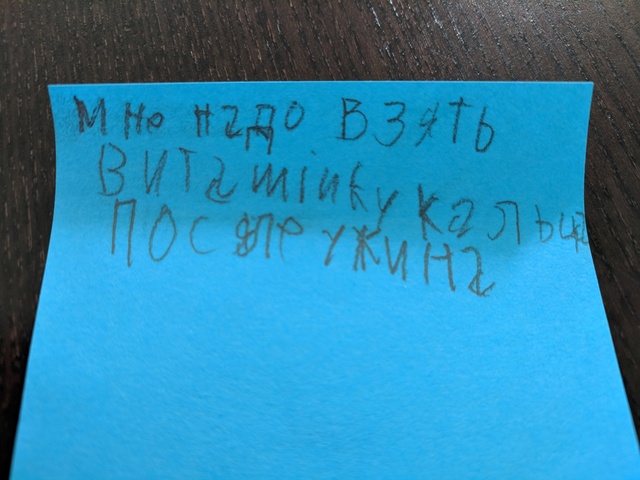 мне надо взять
витаминку кальця
после ужина